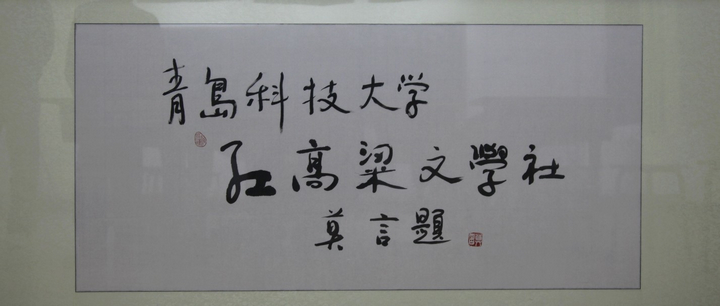 青島科技大学
红高粱文學社
莫言題